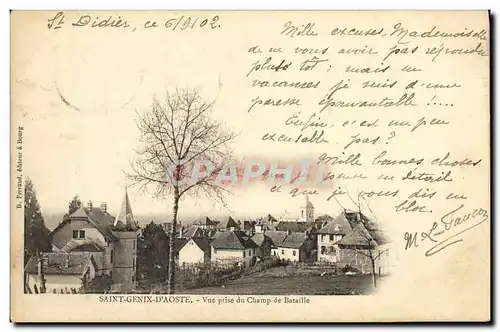 St Didier, ce 6/9/02.
Mille excuses, Mademoiselle
de ne vous avoir pas répondu
plus tôt : mais en
vacances je suis d'une
paresse épouvantable !....
Enfin, c'est un peu
excusable, pas ?
Mille bonnes choses
en détail
que je vous dis en
bloc.
M. L.
CPARAMA.COM
B. Ferrand, éditeur à Bourg
SAINT-GENIX-D'AOSTE. - Vue prise du Champ de Bataille